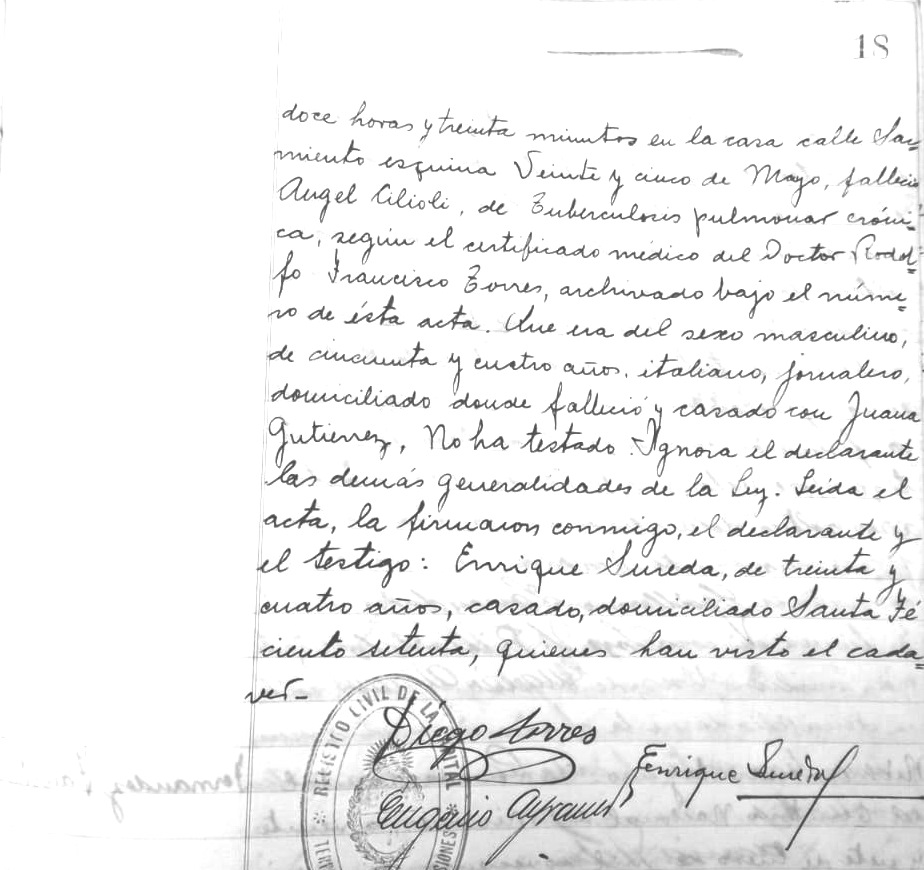 18
doce horas y treinta minutos en la casa calle Sar=
miento esquina Veinte y cinco de Mayo, falleció
Angel Cilioli, de Tuberculosis pulmonar cróni=
ca, según el certificado médico del Doctor Rodol=
fo Francisco Torres, archivado bajo el núme=
ro de ésta acta. Que era del sexo masculino,
de cincuenta y cuatro años, italiano, jornalero,
domiciliado donde falleció y casado con Juana
Gutierrez, No ha testado. Ignora el declarante
las demás generalidades de la Ley. Leida el
acta, la firmaron conmigo, el declarante y
el testigo: Enrique Sureda, de treinta y
cuatro años, casado, domiciliado Santa Fé
ciento setenta, quienes han visto el cada=
ver-
REGISTRO CIVIL DE LA CAPITAL
Diego Torres
Enrique Sureda
Eugenio